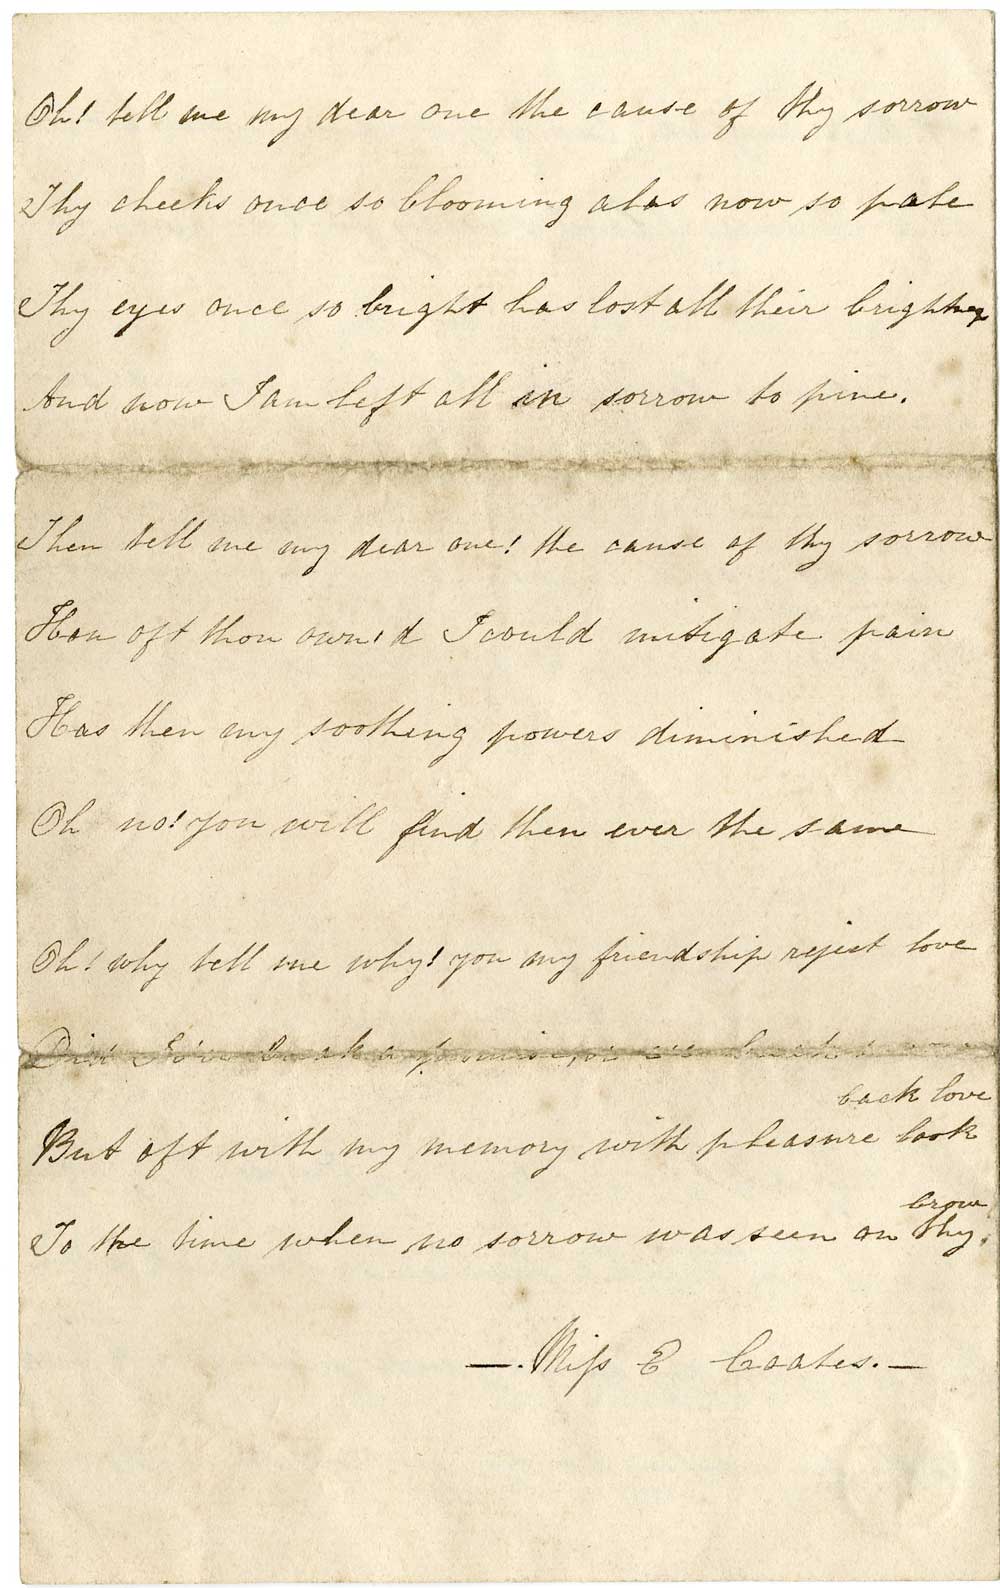 Oh! tell me my dear one the cause of thy sorrow
Thy cheeks once so blooming alas now so pale
Thy eyes once so bright has lost all their
And now I am left all in sorrow to pine.
Then tell me my dear one! the cause of thy sorrow
How oft thou own'd I could mitigate pain
Has then my soothing powers diminished
Oh no! you will find then ever the same
Oh! why tell me why! you my friendship reject love
Did I e'er break a promise, or
back love
But oft with my memory with pleasure look
brow
To the time when no sorrow was seen on thy.
—. Miſs E Coates. —